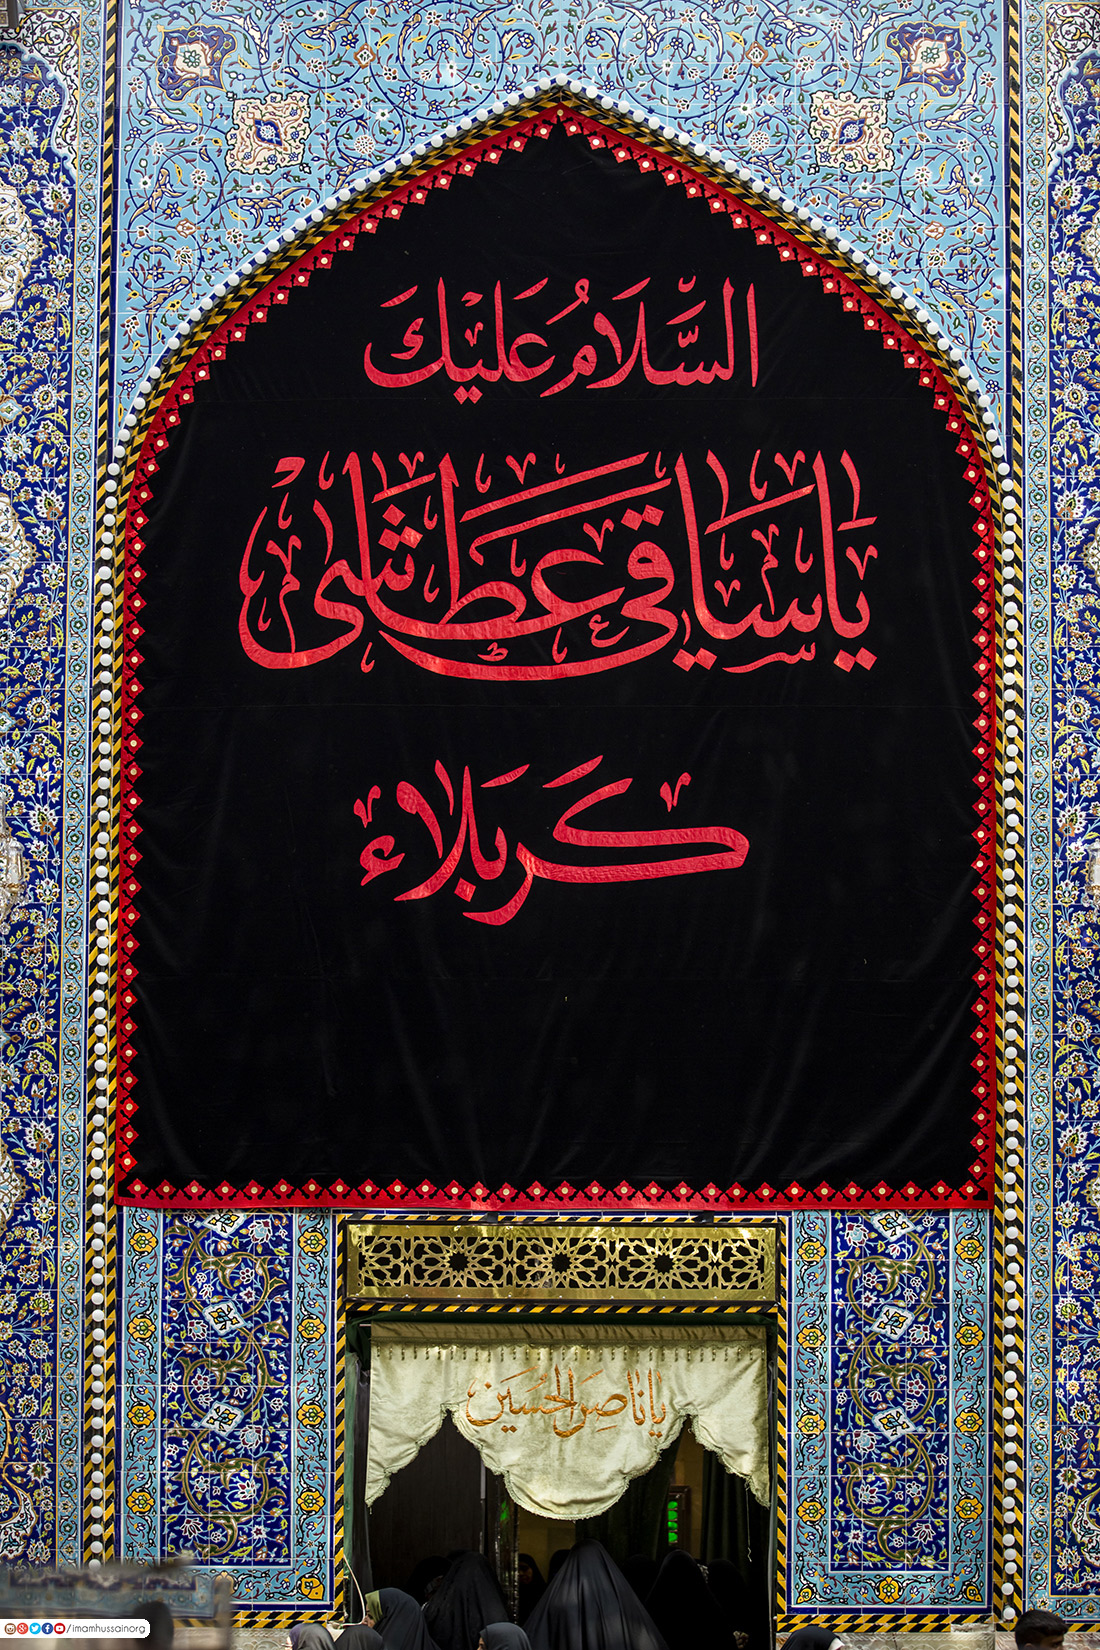 السَّلَامُ عَلَيْكَ
يَا سَاقِيَ عَطَاشَى
كَرْبَلَاء
يا ناصر الحسين
/imamhussainorg